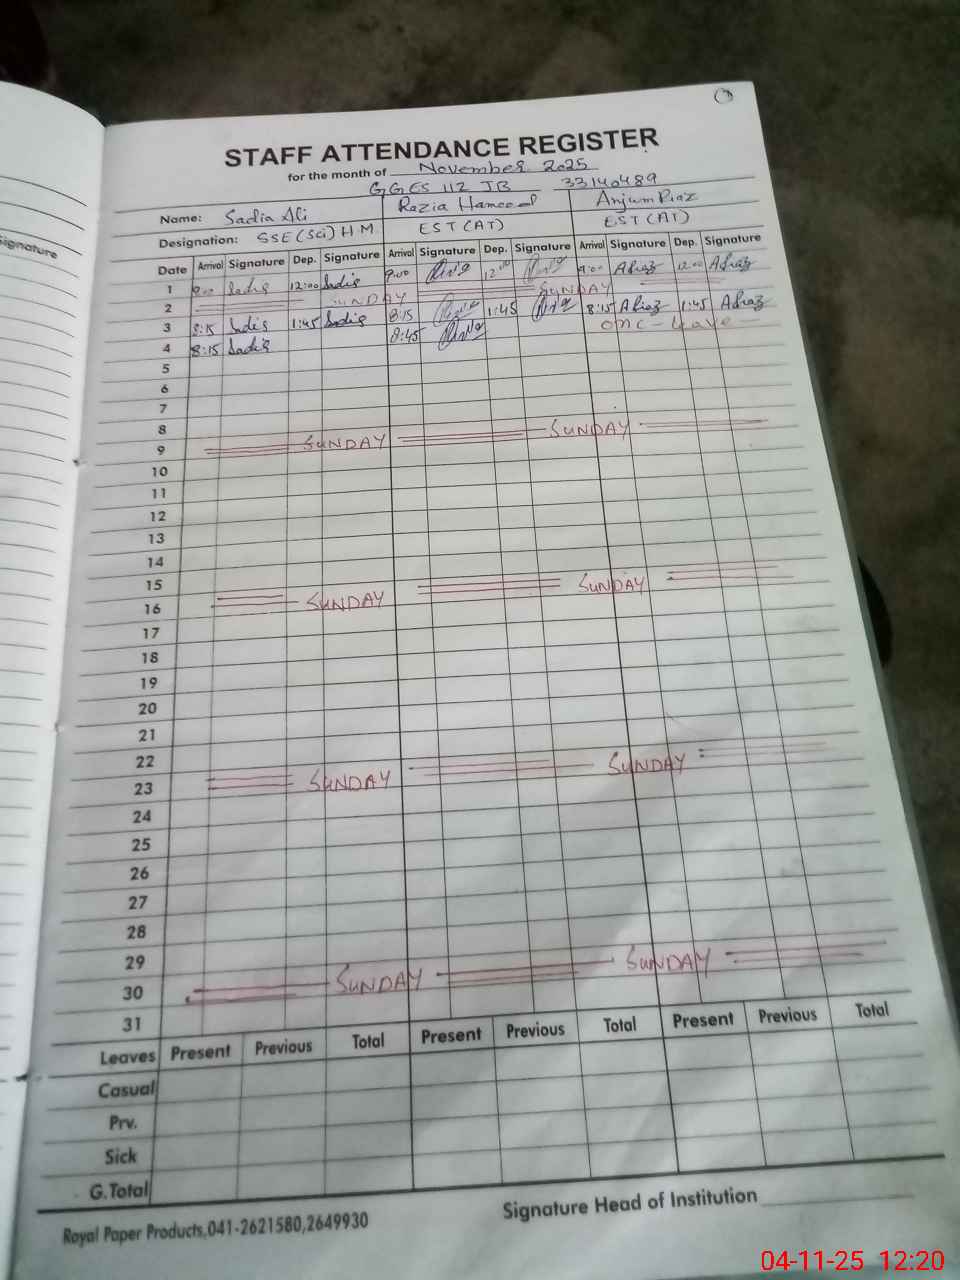 STAFF ATTENDANCE REGISTER
for the month of November 2025
GGES 112 JB 33140489
Name: Sadia Ali Razia Hameed Anjum Riaz
Designation: SSE (Sci) H.M. EST (AT) EST (AT)
Signature
Date Arrival Signature Dep. Signature Arrival Signature Dep. Signature Arrival Signature Dep. Signature
1 9:00 Sadia 12:00 Sadia 9:00 12:00 9:00 ARiaz 12:00 ARiaz
2 SUNDAY SUNDAY
3 8:15 Sadia 1:45 Sadia 8:15 1:45 8:15 ARiaz 1:45 ARiaz
4 8:15 Sadia 8:45 one - Leave -
5
6
7
8
9 SUNDAY SUNDAY
10
11
12
13
14
15
16 SUNDAY SUNDAY
17
18
19
20
21
22
23 SUNDAY SUNDAY
24
25
26
27
28
29
30 SUNDAY SUNDAY
31
Leaves Present Previous Total Present Previous Total Present Previous Total
Casual
Prv.
Sick
G.Total
Royal Paper Products,041-2621580,2649930 Signature Head of Institution
04-11-25 12:20